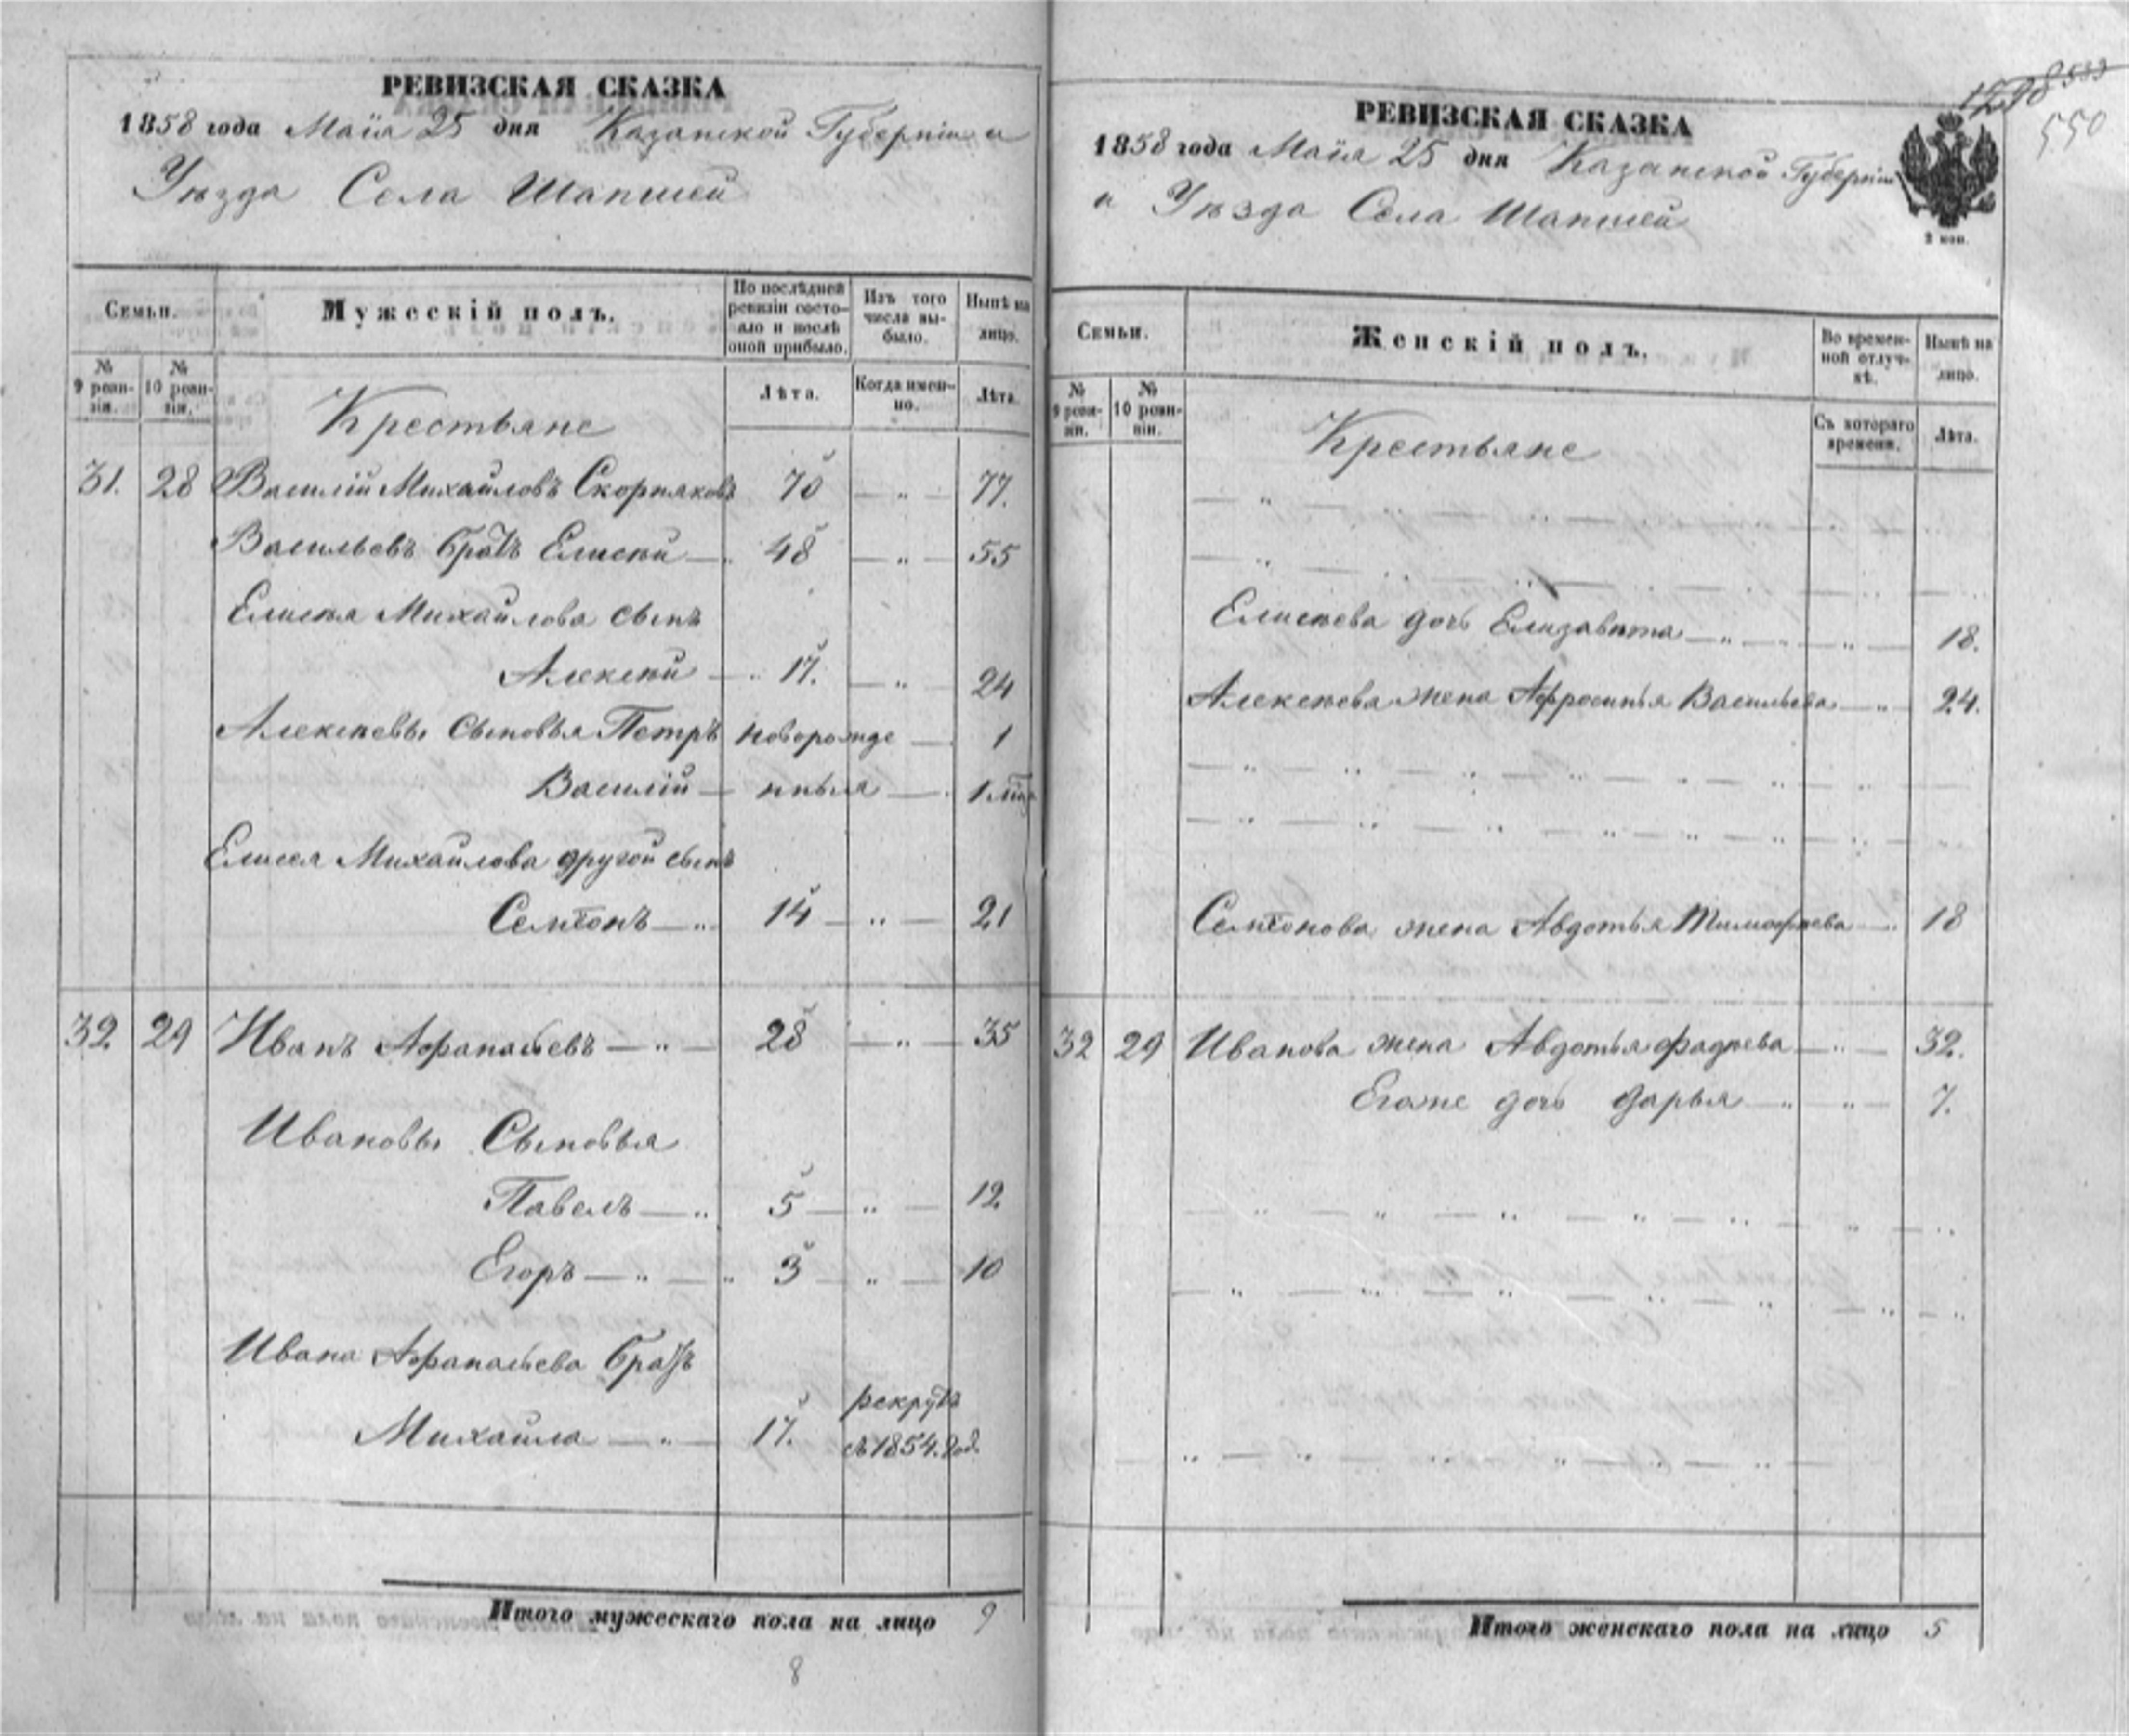 РЕВИЗСКАЯ СКАЗКА
1858 года Маія 25 дня Казанской Губерніи и
Уѣзда Села Шапшей
Семьи.
Мужескій полъ.
По послѣдней ревизіи состояло и послѣ оной прибыло.
Изъ того числа выбыло.
Нынѣ на лицо.
№ 9 ревизіи.
№ 10 ревизіи.
Лѣта.
Когда именно.
Лѣта.
Крестьяне
31. 28 Василій Михайловъ Скорняковъ 70 — „ — 77.
Васильевъ братъ Елисѣй — „ 48 — „ — 55
Елисѣя Михайлова сынъ
Алексѣй — „ 17. — „ — 24
Алексѣевы сыновья Петръ новорожде — 1
Василій — нныя — 1 мѣс
Елисея Михайлова другой сынъ
Семіонъ — „ 14 — „ — 21
32 29 Иванъ Афанасьевъ — „ — 28 — „ — 35
Ивановы Сыновья
Павелъ — „ 5 — „ — 12
Егоръ — „ — „ 3 — „ — 10
Ивана Афанасьева братъ
Михайла — „ — 17. рекрутъ
въ 1854. год.
Итого мужескаго пола на лицо 9
8
1298 533
550
РЕВИЗСКАЯ СКАЗКА
1858 года Маія 25 дня Казанской Губерніи
и Уѣзда Села Шапшей
2 коп.
Семьи.
Женскій полъ.
Во временной отлучкѣ.
Нынѣ на лицо.
№ 9 ревизіи.
№ 10 ревизіи.
Съ котораго времени.
Лѣта.
Крестьяне
Елисѣева дочь Елизавѣта — „ — „ — 18.
Алексѣева жена Афросинья Васильева — „ — 24.
Семіонова жена Авдотья Тимофѣева — „ 18
32 29 Иванова жена Авдотья Фадѣева — „ — 32.
Егоже дочь Дарья — „ „ — 7.
Итого женскаго пола на лицо 5